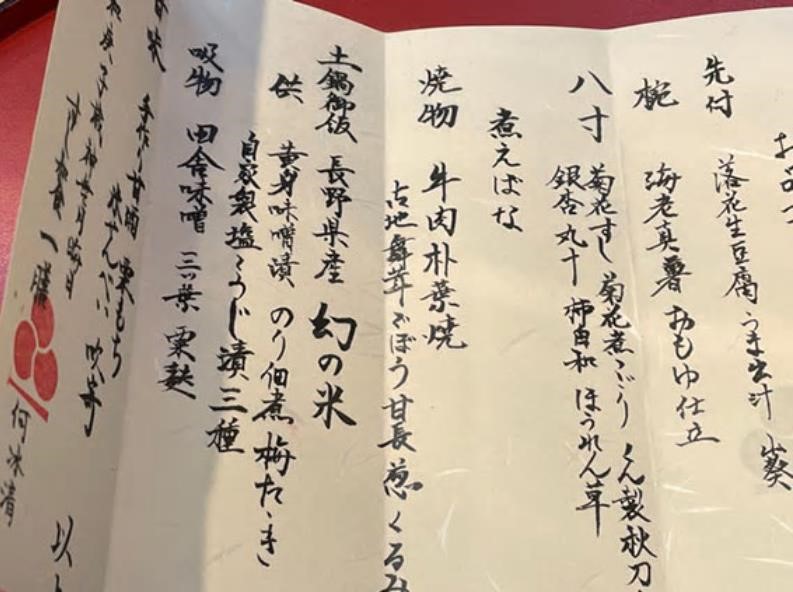 先付
落花生豆腐 うま出汁 山葵
椀
海老真薯 おもゆ仕立
八寸
菊花すし 菊花煮こごり くん製秋刀
銀杏丸十 柿白和 ほうれん草
煮えばな
焼物
牛肉朴葉焼
古地舞茸 ごぼう 甘長 葱 くるみ
土鍋御飯 長野県産 幻の米
供 黄身味噌漬 のり佃煮 梅たゝき
自家製塩こうじ漬三種
吸物 田舎味噌 三ッ葉 栗麩
甘味
栗もち
吹寄
一勝
何冰清
以上